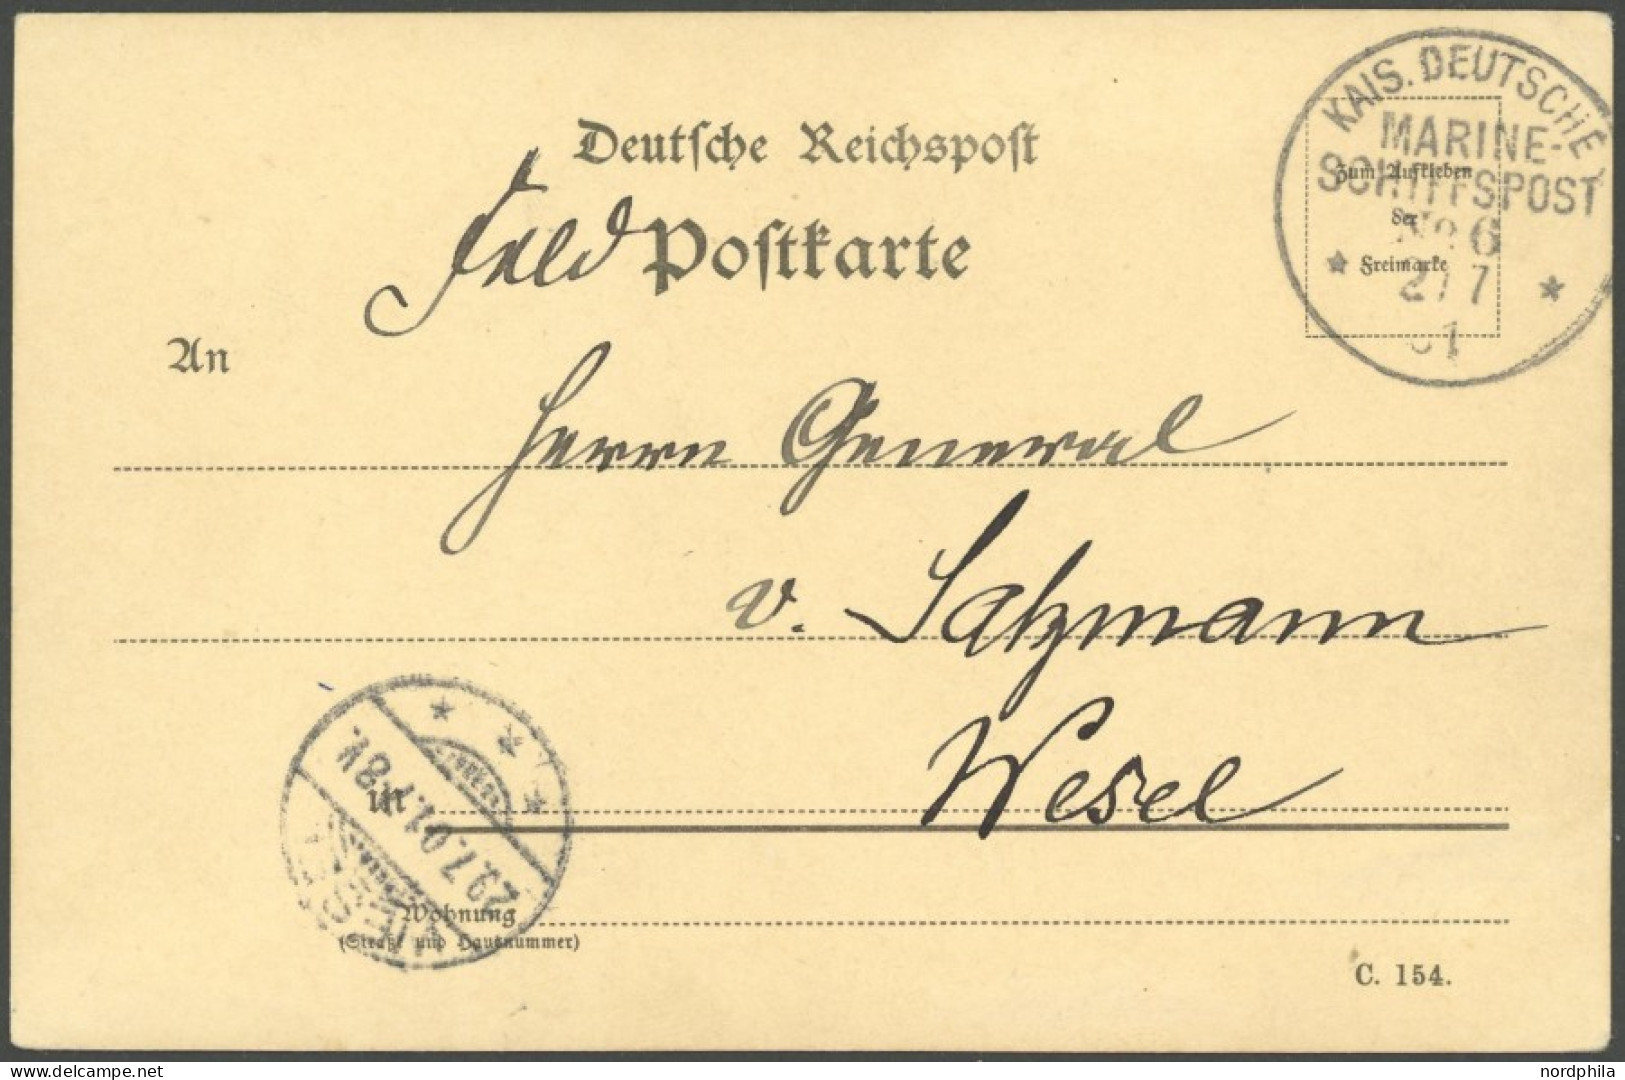 KAIS. DEUTSCHE
MARINE-
SCHIFFSPOST
No 6
* 7 *
1
Deutsche Reichspost
Feld Postkarte
Zum Aufkleben
der
Freimarke
An
Herrn General
v. Salzmann
in Wesel
WESEL
29.7.01.7-8V.
* * *
Wohnung
(Straße und Hausnummer)
C. 154.
delcampe.net
nordphila